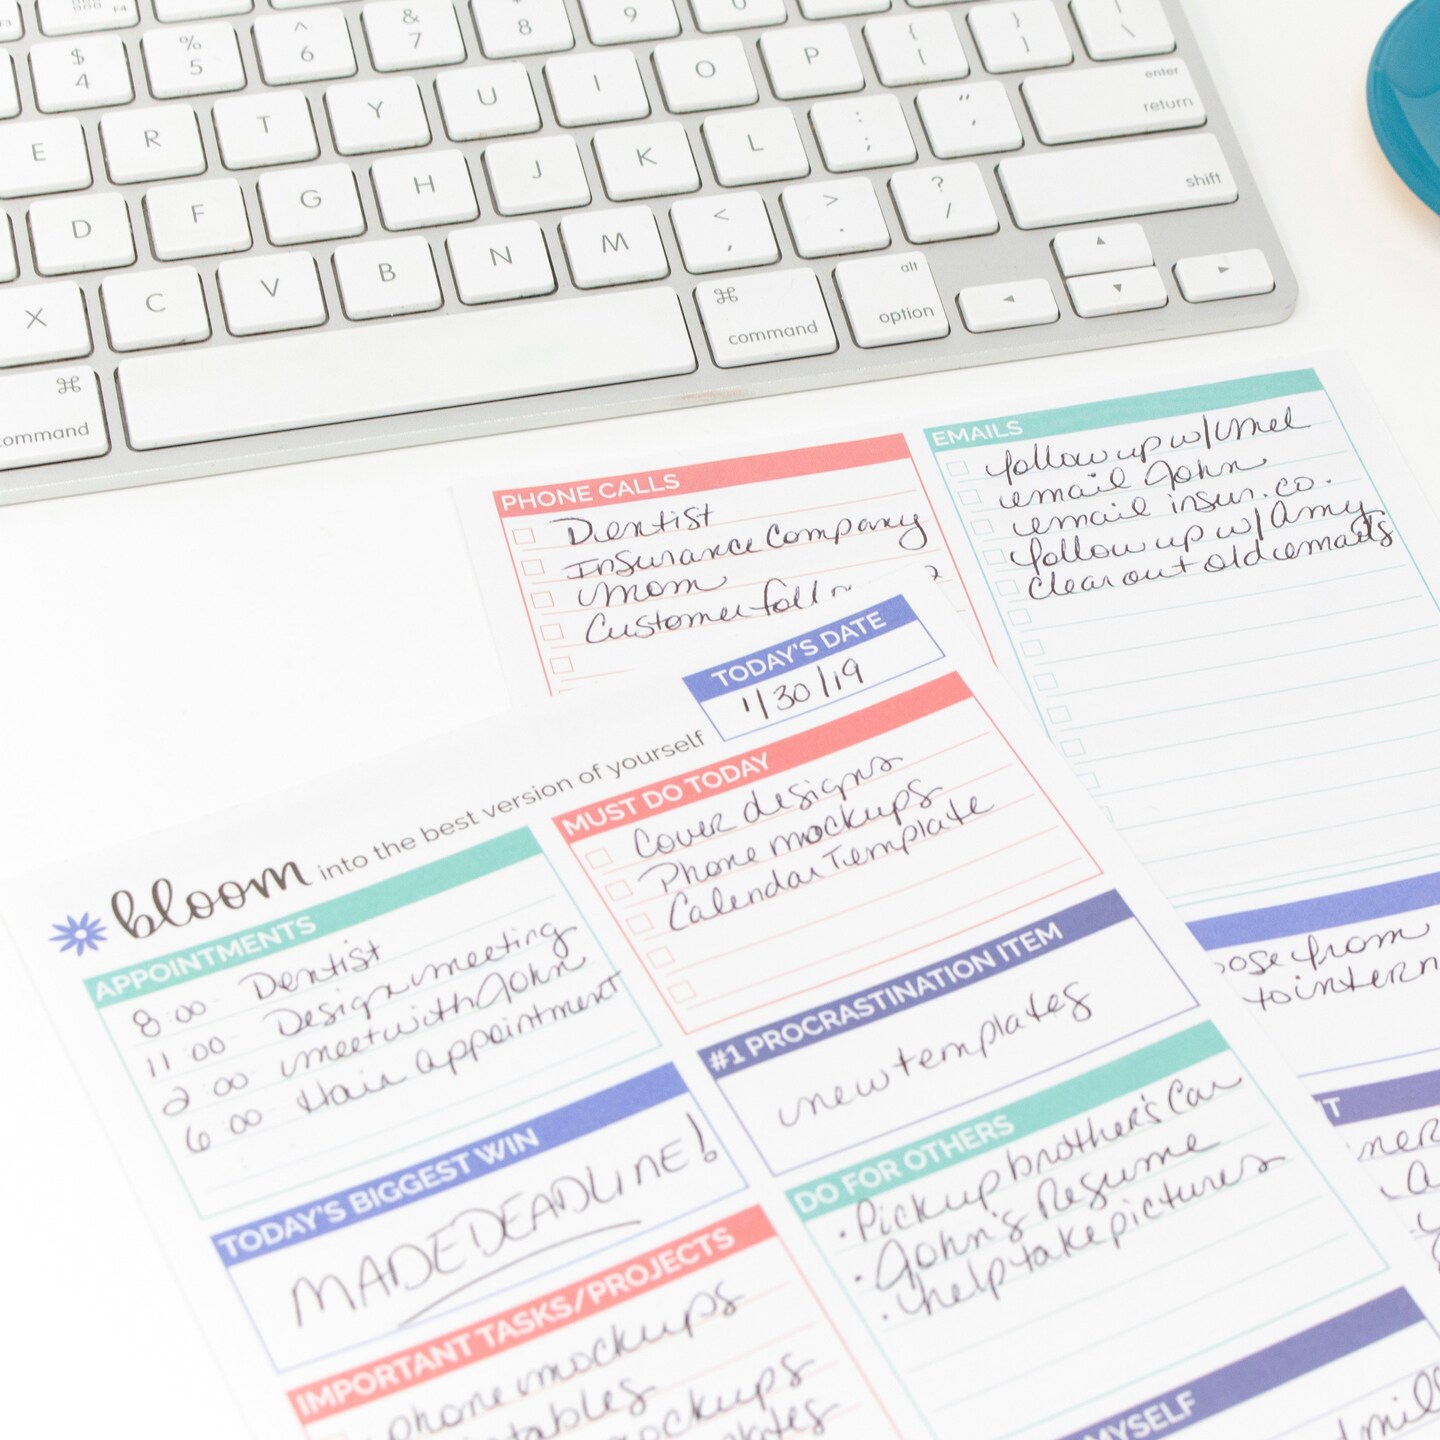 $ 4
% 5
^ 6
& 7
* 8
9
0
E R T Y U I O P { [ } ] | \
enter
return
D F G H J K L : ; " '
shift
X C V B N M < , > . ? /
⌘
command
⌘
command
alt
option
PHONE CALLS
Dentist
Insurance Company
Mom
Customer foll
EMAILS
follow up w/ Mel
email John
email insur. co.
follow up w/ Amy
clear out old emails
TODAY'S DATE
1/30/19
bloom into the best version of yourself
APPOINTMENTS
8:00 - Dentist
11:00 - Design meeting
2:00 - meet with John
6:00 - Hair appointment
TODAY'S BIGGEST WIN
MADE DEADLINE!
IMPORTANT TASKS/PROJECTS
phone mockups
tables
mockups
MUST DO TODAY
Cover designs
Phone mockups
Calendar Template
#1 PROCRASTINATION ITEM
new templates
DO FOR OTHERS
• Pick up brother's car
• John's Resume
• help take pictures
MYSELF
ose from
to intern
T